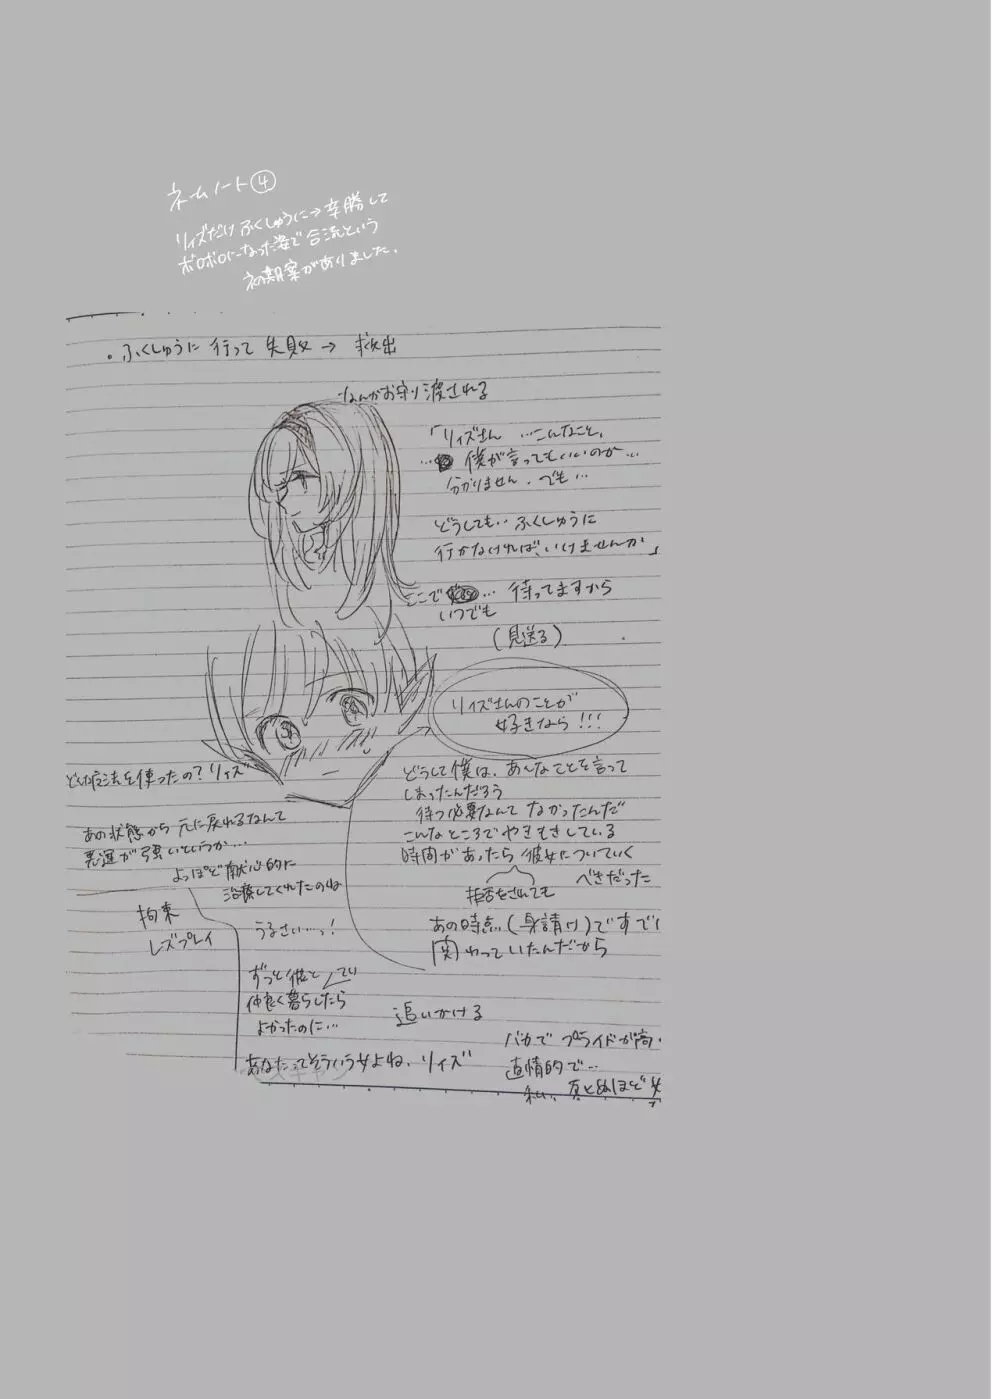 ネームノート④
リィズだけふくしゅうに→辛勝して
ボロボロになった姿で合流という
初期案がありました。
・ふくしゅうに行って失敗→救出
なんかお守り渡される
「リィズさん…こんなこと、
…僕が言ってもいいのか…
分かりません。でも…
どうしても…ふくしゅうに
行かなければ、いけませんか」
ここで…待ってますから
いつでも
(見送る)
リィズさんのことが
好きなら!!!
どうして僕は、あんなことを言って
しまったんだろう
待つ必要なんてなかったんだ
こんなところでやきもきしている
時間があったら彼女についていく
べきだった
拒否をされても
あの時点(身請け)ですでに
関わっていたんだから
追いかける
どんな方法を使ったの?リィズ
あの状態から元に戻れるなんて
悪運が強いというか…
よっぽど献心的に
治療してくれたのね
拘束
レズプレイ
うるさい…っ!
ずっと彼と
仲良く暮らしてたら
よかったのに…
あなたってそういう女よね、リィズ
バカでプライドが高
直情的で…